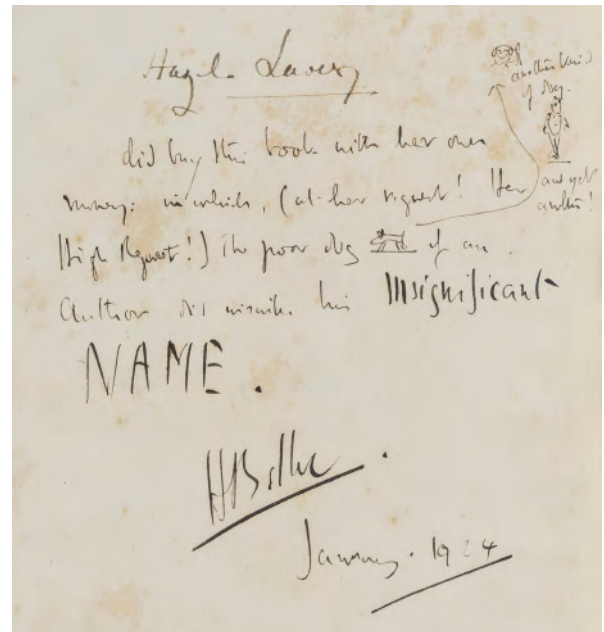 Hazel Lavery
did buy this book with her own
money: in which, (at her request! Her
High Request!) the poor dog of an
Author did inscribe his Insignificant
NAME.
HBelloc.
January. 1924
another kind
of dog.
and yet
another!